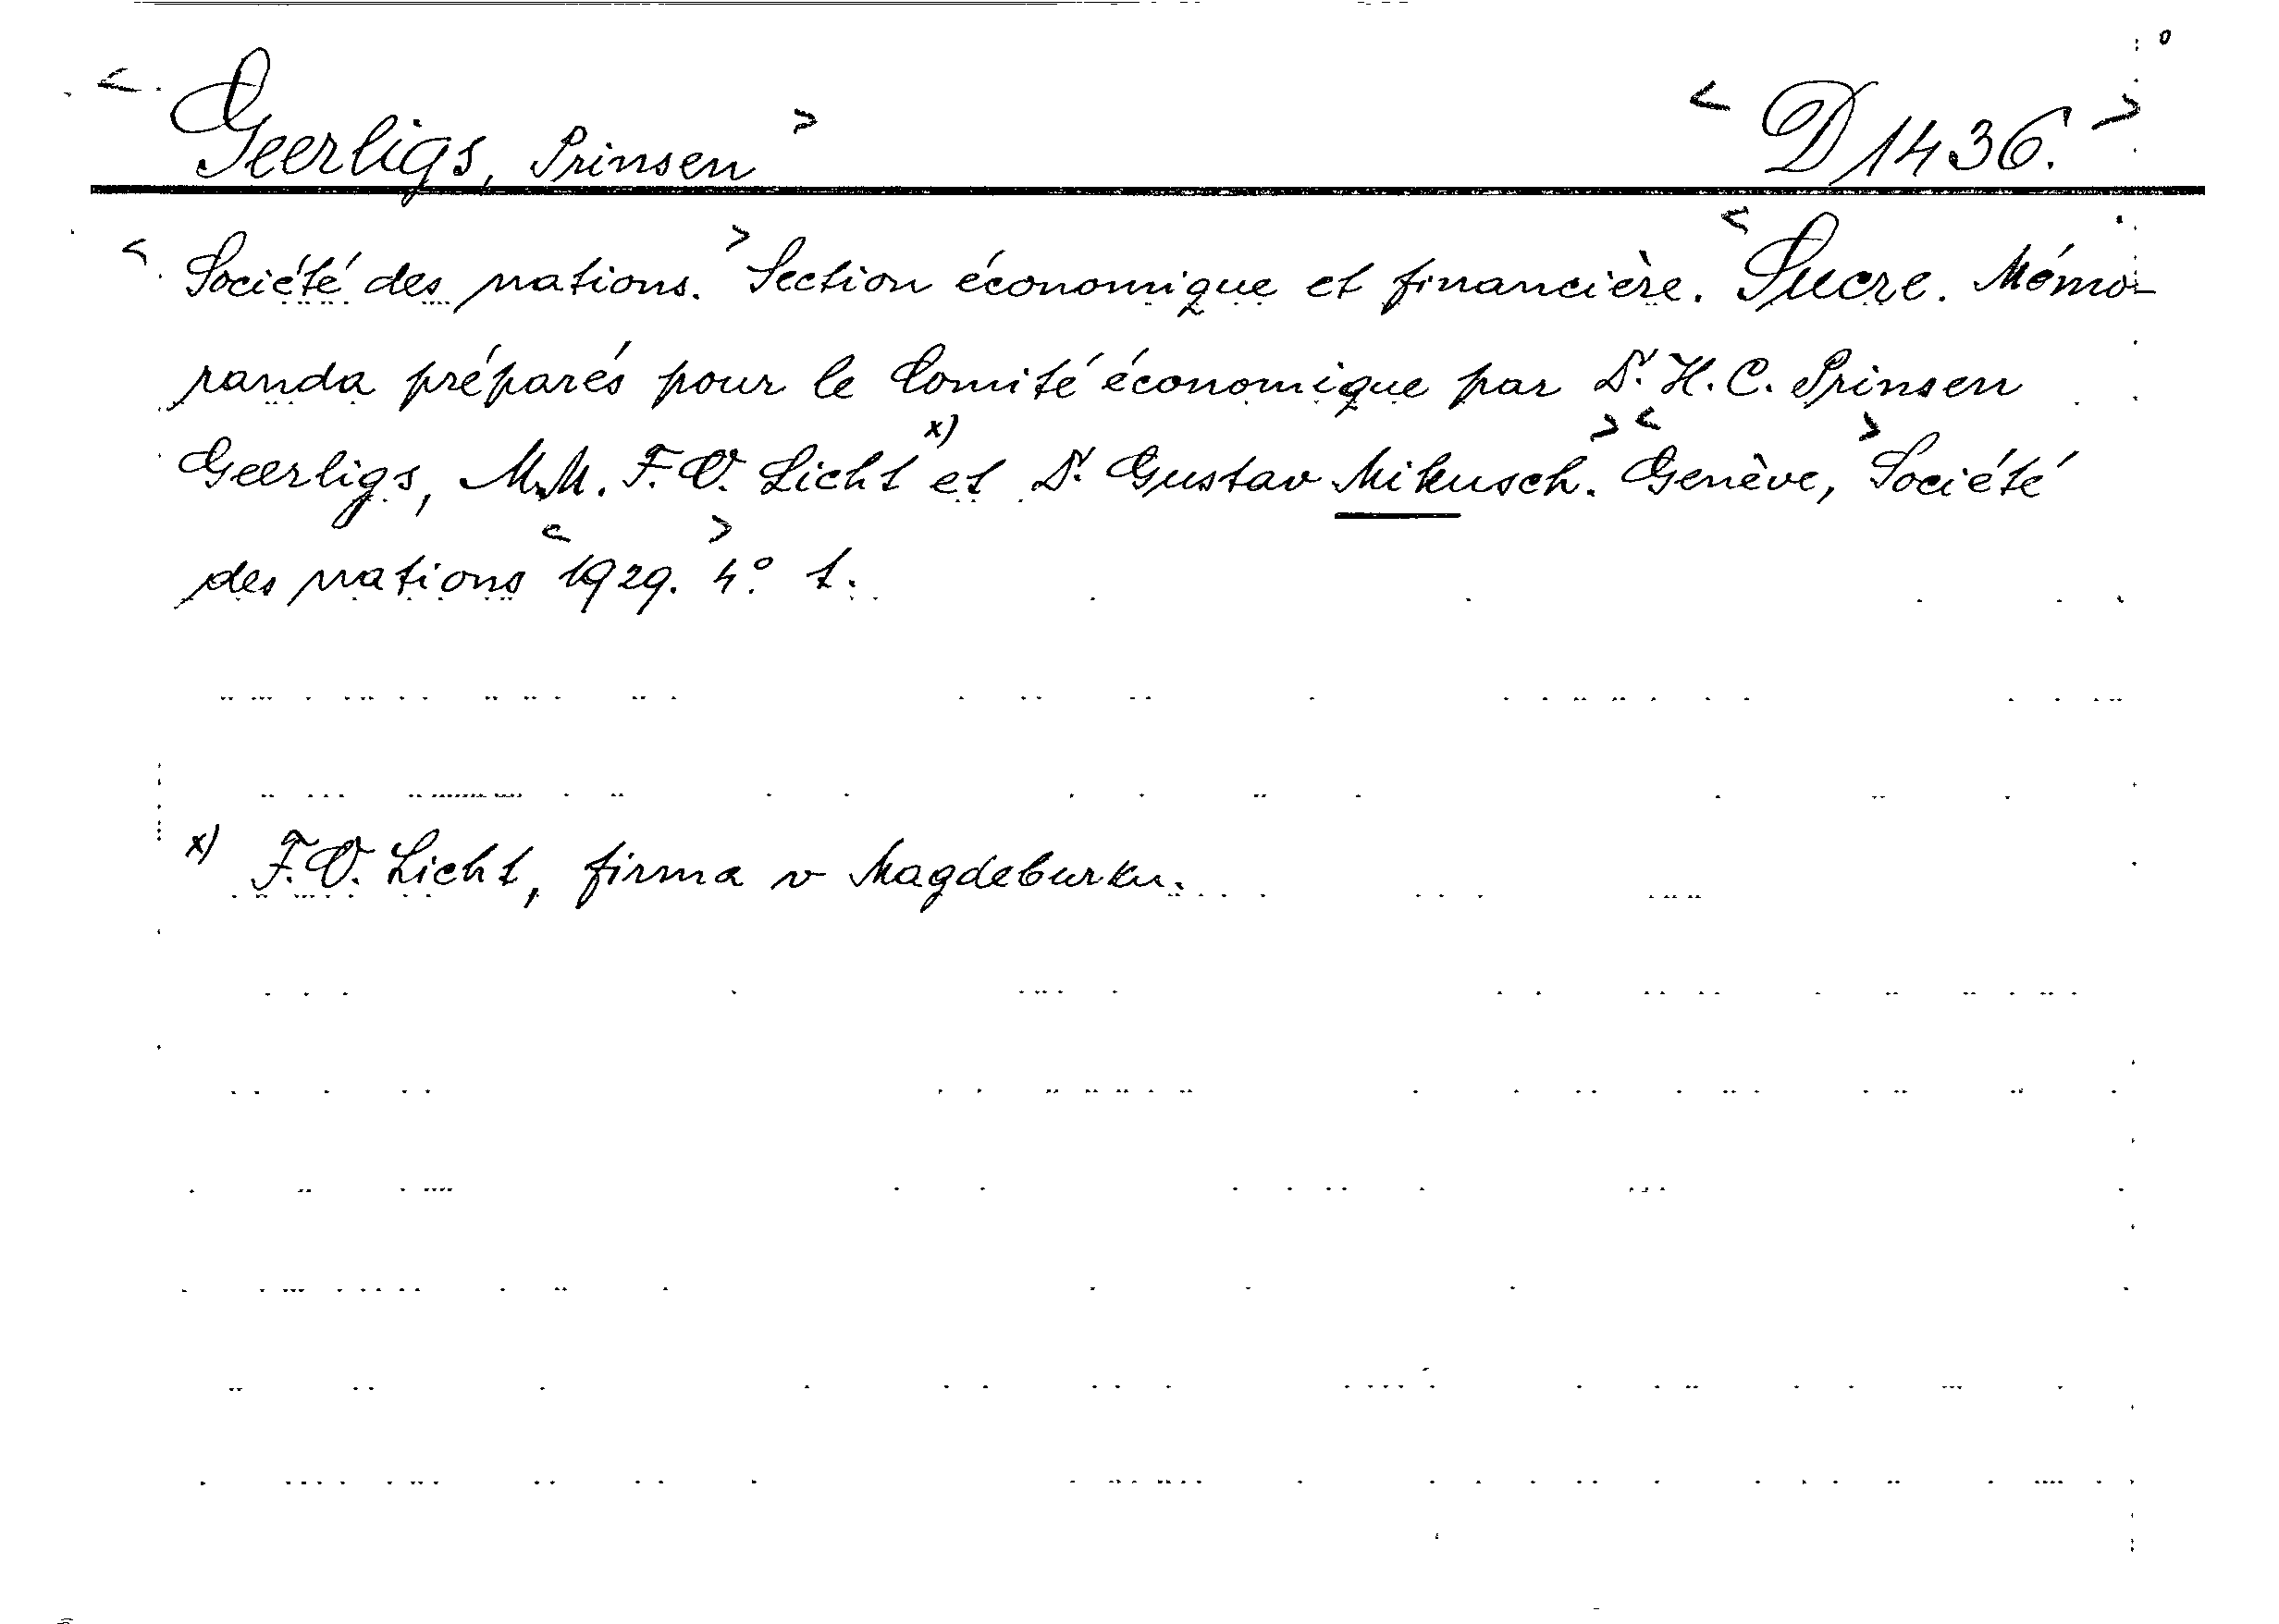 < Geerligs, Prinsen > < D 1436. >
< Société des nations. > Section économique et financière. < Sucre. Mémo-
randa préparés pour le Comité économique par Dr. H. C. Prinsen
Geerligs, M.M. F. O. Licht x) et Dr. Gustav Mikusch. > < Genève, > Société
des nations < 1929. > 4° 1.
x) F. O. Licht, firma v Magdeburku.